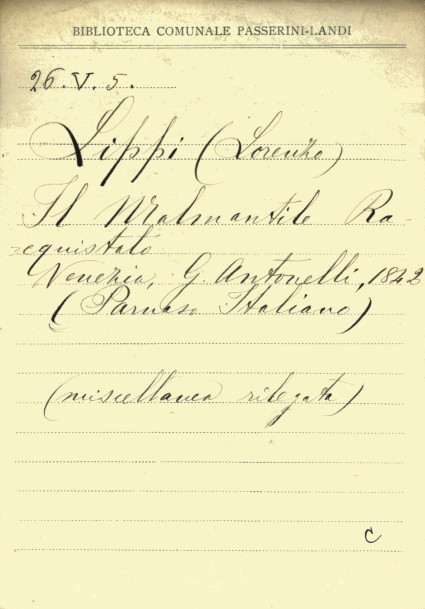 BIBLIOTECA COMUNALE PASSERINI-LANDI
26.V.5.
Lippi (Lorenzo)
Il Malmantile Ra-
cquistato
Venezia, G. Antonelli, 1842
(Parnaso Italiano)
(miscellanea rilegata)
C